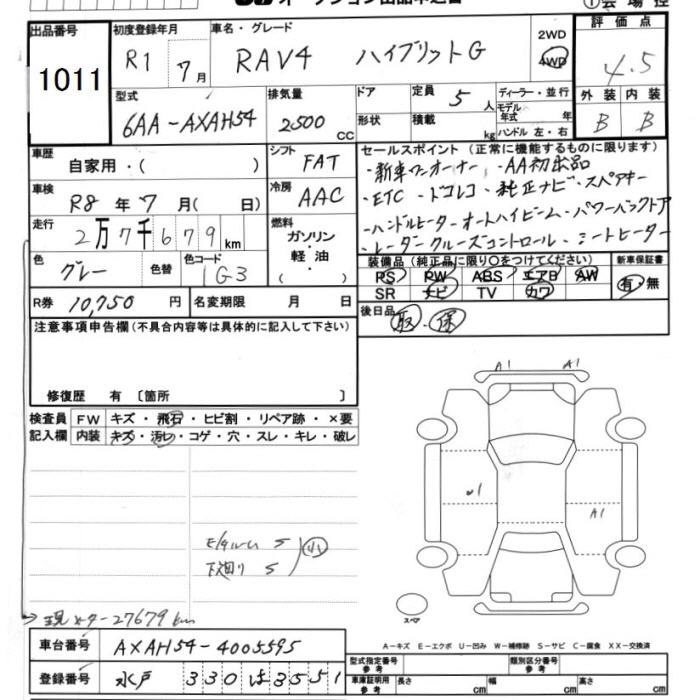 ①会場控
出品番号
1011
初度登録年月
R1 7月
車名・グレード
RAV4 ハイブリットG
2WD
4WD
評価点
4.5
型式
6AA-AXAH54
排気量
2500 CC
ドア
形状
定員 5人
積載 kg
ディーラー・並行
モデル年式 年
ハンドル 左・右
外装 内装
B B
車歴
自家用・( )
シフト
FAT
セールスポイント(正常に機能するものに限ります)
・新車ワンオーナー ・AA初出品
・ETC・ドラレコ・純正ナビ・スペアキー
・ハンドルヒーター・オートハイビーム・パワーバックドア
・レーダークルーズコントロール・シートヒーター
車検
R8年7月( 日)
冷房
AAC
走行
2万7千679km
燃料
ガソリン・軽油
( )
色
グレー
色替
色コード
1G3
装備品(純正品に限り○をつけてください)
PS PW ABS エアB AW
SR ナビ TV カワ
新車保証書
有・無
R券 10,750円
名変期限 月 日
後日品
取・保
注意事項申告欄(不具合内容等は具体的に記入して下さい)
修復歴 有〔箇所 〕
検査員記入欄
FW キズ・飛石・ヒビ割・リペア跡・×要
内装 キズ・汚レ・コゲ・穴・スレ・キレ・破レ
A1 A1
A1
下廻り S
小
スペア
→現メーター27679km
A-キズ E-エクボ U-凹み W-補修跡 S-サビ C-腐食 XX-交換済
車台番号 AXAH54-4005595
登録番号 水戸 330 は 3551
型式指定番号 参考
類別区分番号 参考
車庫証明用 参考
長さ cm 幅 cm 高さ cm